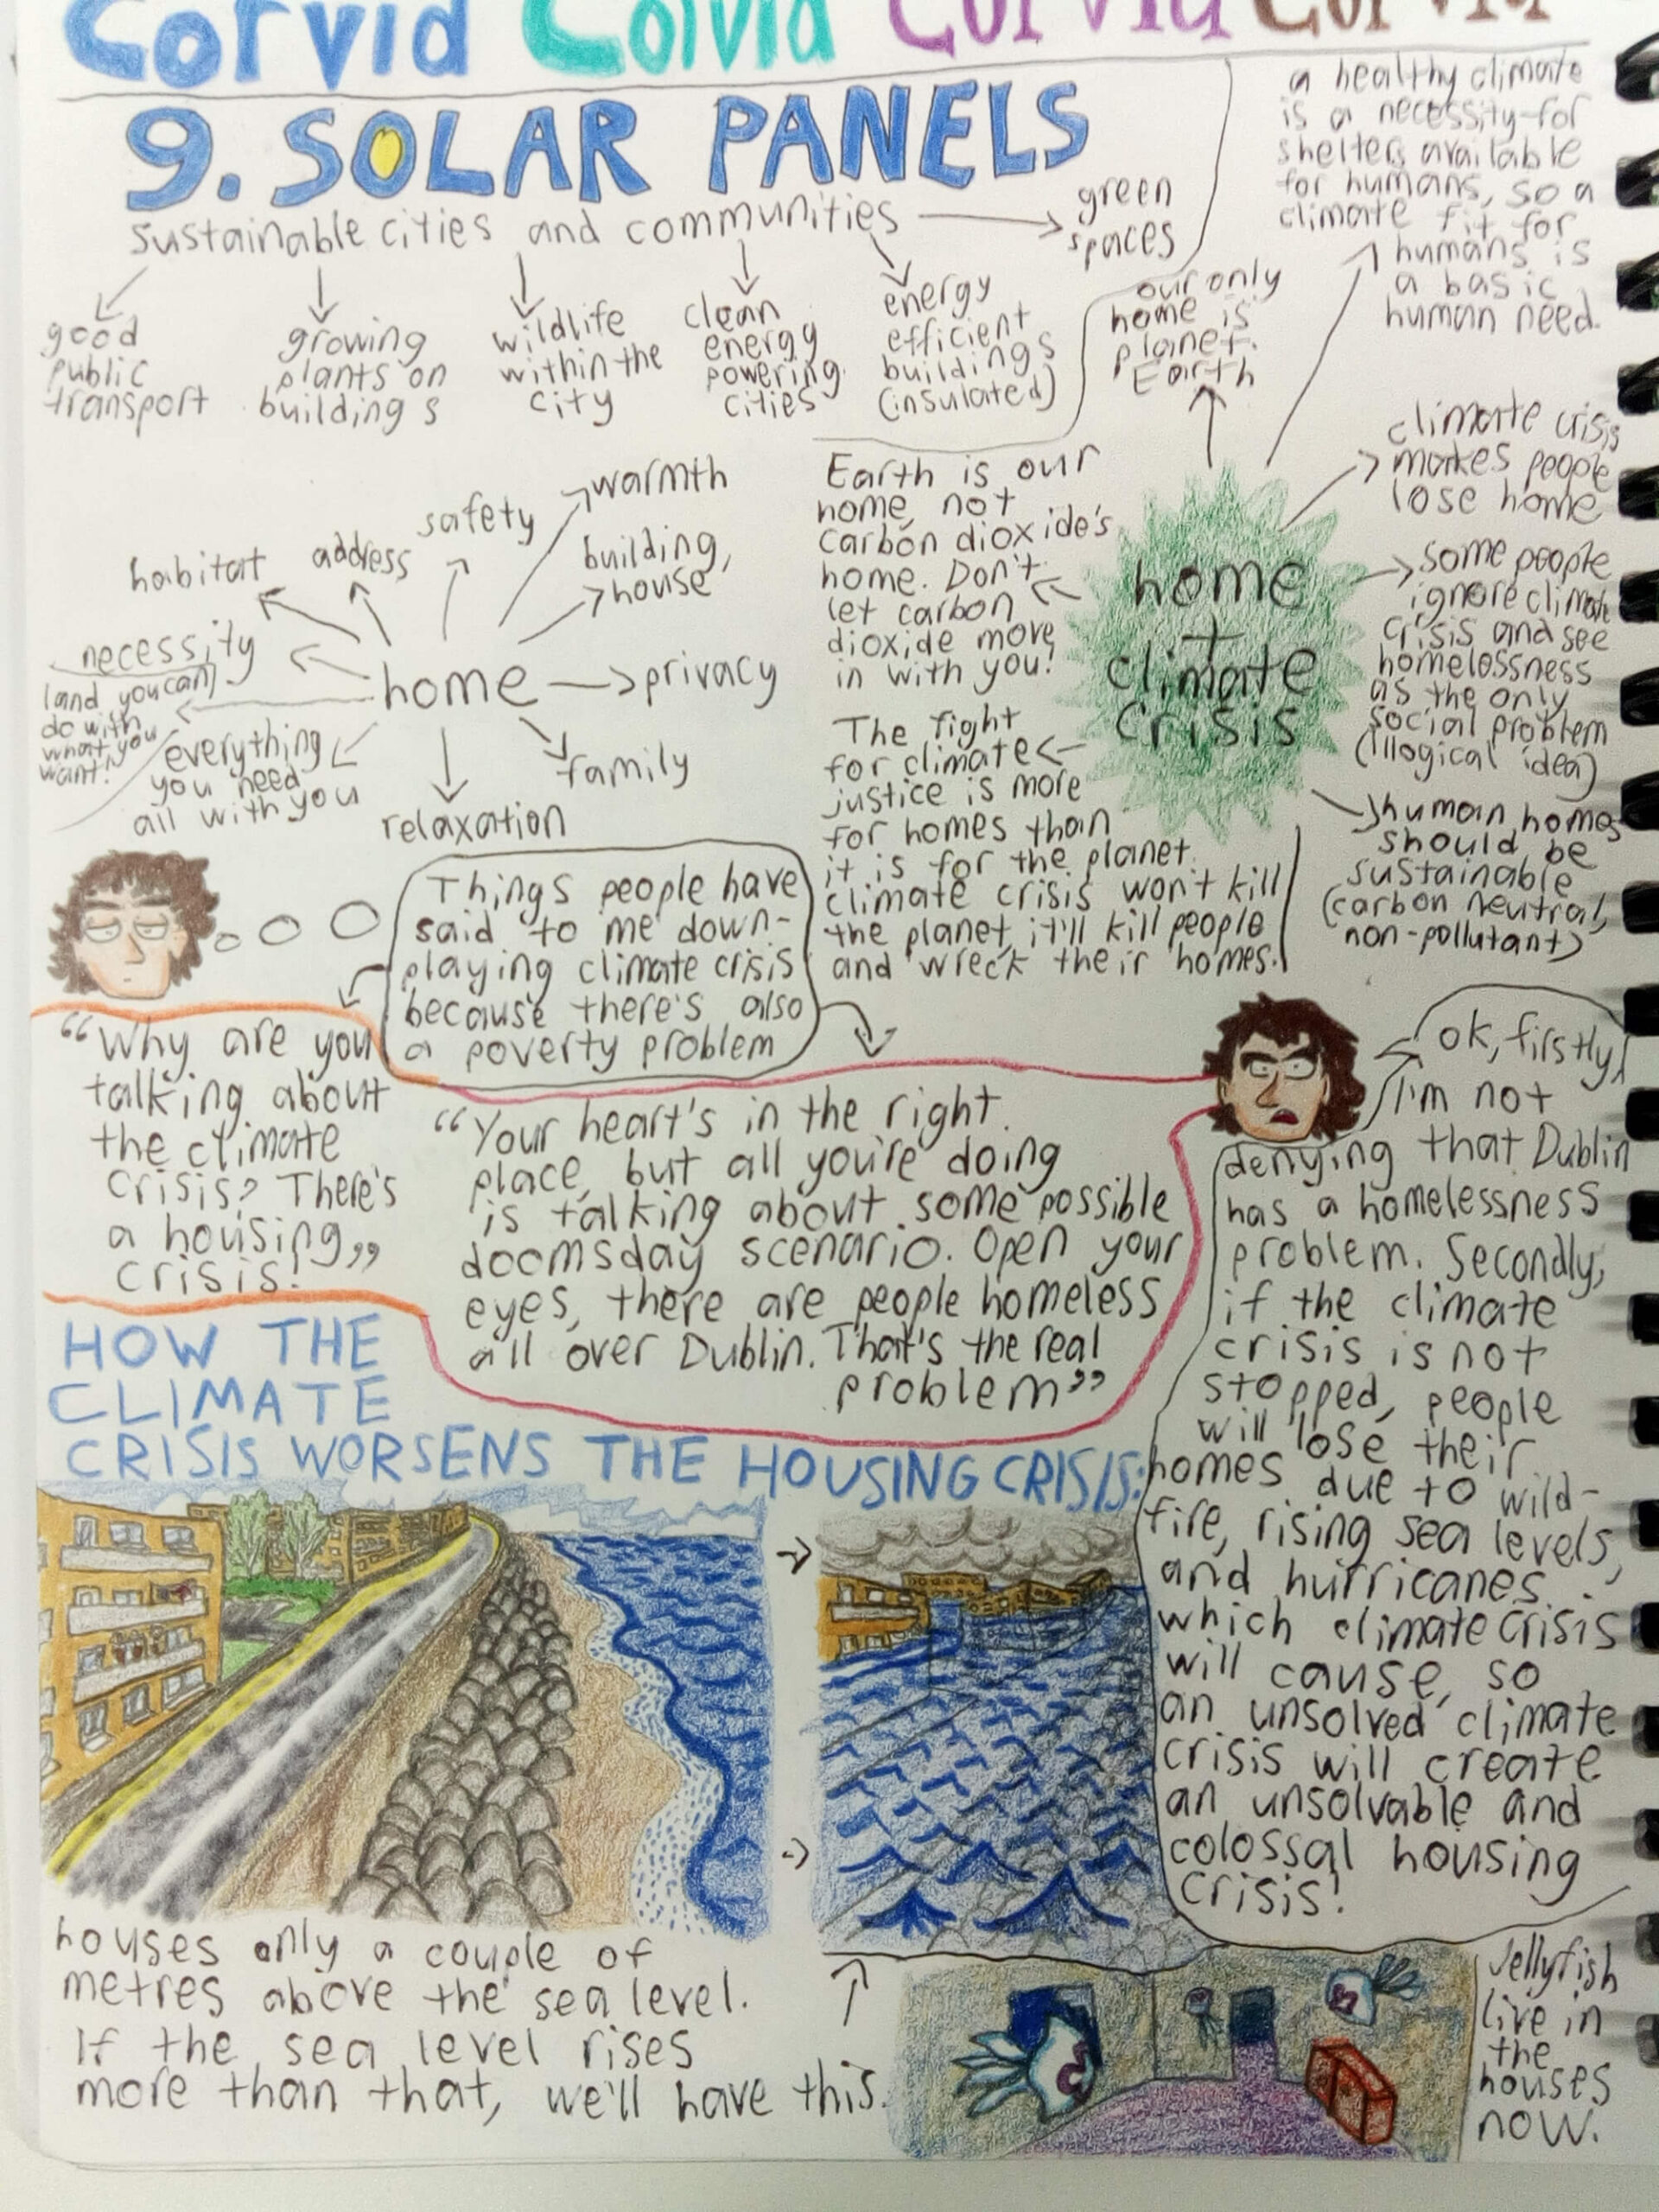 Corvid Colvid Corvid Corvid
9. SOLAR PANELS
sustainable cities and communities
green
spaces
good
public
transport
growing
plants on
buildings
wildlife
within the
city
clean
energy
powering
cities
energy
efficient
buildings
(insulated)
our only
home is
planet
Earth
a healthy climate
is a necessity for
shelter available
for humans, so a
climate fit for
humans is
a basic
human need.
climate crisis
makes people
lose home
some people
ignore climate
crisis and see
homelessness
as the only
social problem
(illogical idea)
human homes
should be
sustainable
(carbon neutral,
non-pollutant)
home
+
climate
crisis
Earth is our
home, not
carbon dioxide's
home. Don't
let carbon
dioxide move
in with you!
The fight
for climate
justice is more
for homes than
it is for the planet.
climate crisis won't kill
the planet, it'll kill people
and wreck their homes.
warmth
safety
address
habitat
building,
house
necessity
land you can
do with
what you
want!
home
privacy
everything
you need
all with you
family
relaxation
Things people have
said to me down-
playing climate crisis
because there's also
a poverty problem
"Why are you
talking about
the climate
crisis? There's
a housing
crisis!"
"Your heart's in the right
place, but all you're doing
is talking about some possible
doomsday scenario. Open your
eyes, there are people homeless
all over Dublin. That's the real
problem"
ok, firstly,
I'm not
denying that Dublin
has a homelessness
problem. Secondly,
if the climate
crisis is not
stopped, people
will lose their
homes due to wild-
fire, rising sea levels,
and hurricanes
which climate crisis
will cause, so
an unsolved climate
crisis will create
an unsolvable and
colossal housing
crisis!
HOW THE
CLIMATE
CRISIS WORSENS THE HOUSING CRISIS:
houses only a couple of
metres above the sea level.
If the sea level rises
more than that, we'll have this.
Jellyfish
live in
the
houses
now.